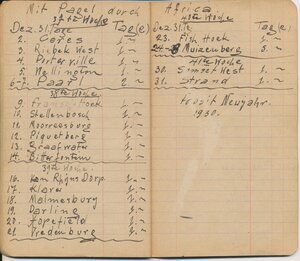 Mit Pagel durch
37te Woche
Dez. 31. Tag(e)
2. Ceres 1.~
3. Riebek West 1.~
4. Porterville 1.~
5. Wellington 1.~
6-7. Paarl 2.~
38te Woche
9. Fransch Hoek 1.~
10. Stellenbosch 1.~
11. Moorreesburg 1.~
12. Piquetberg 1.~
13. Graafwater 1.~
14. Bitterfontein 1.~
39te Woche
16. Van Rhijns Dorp. 1.~
17. Klaver 1.~
18. Malmesbury 1.~
19. Darling 1.~
20. Hopefield 1.~
21. Vredenburg 1.~
Africa
40te Woche
Dez. 31. Tag(e)
23. Fish Hoek 1.~
24- Muizenberg 3.~
41te Woche
30. Somerset West 1.~
31. Strand 1.~
Prosit Neujahr.
1930.